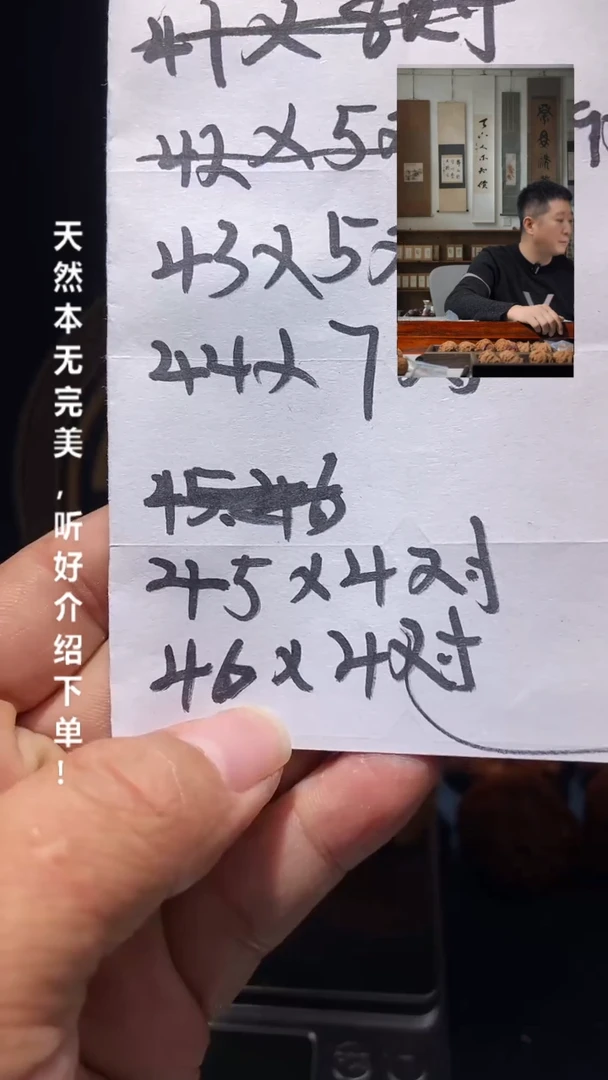 41×8对
42×5对
43×5对
44×7对
45.46
45×4对
46×4对
天然本无完美，听好介绍下单！